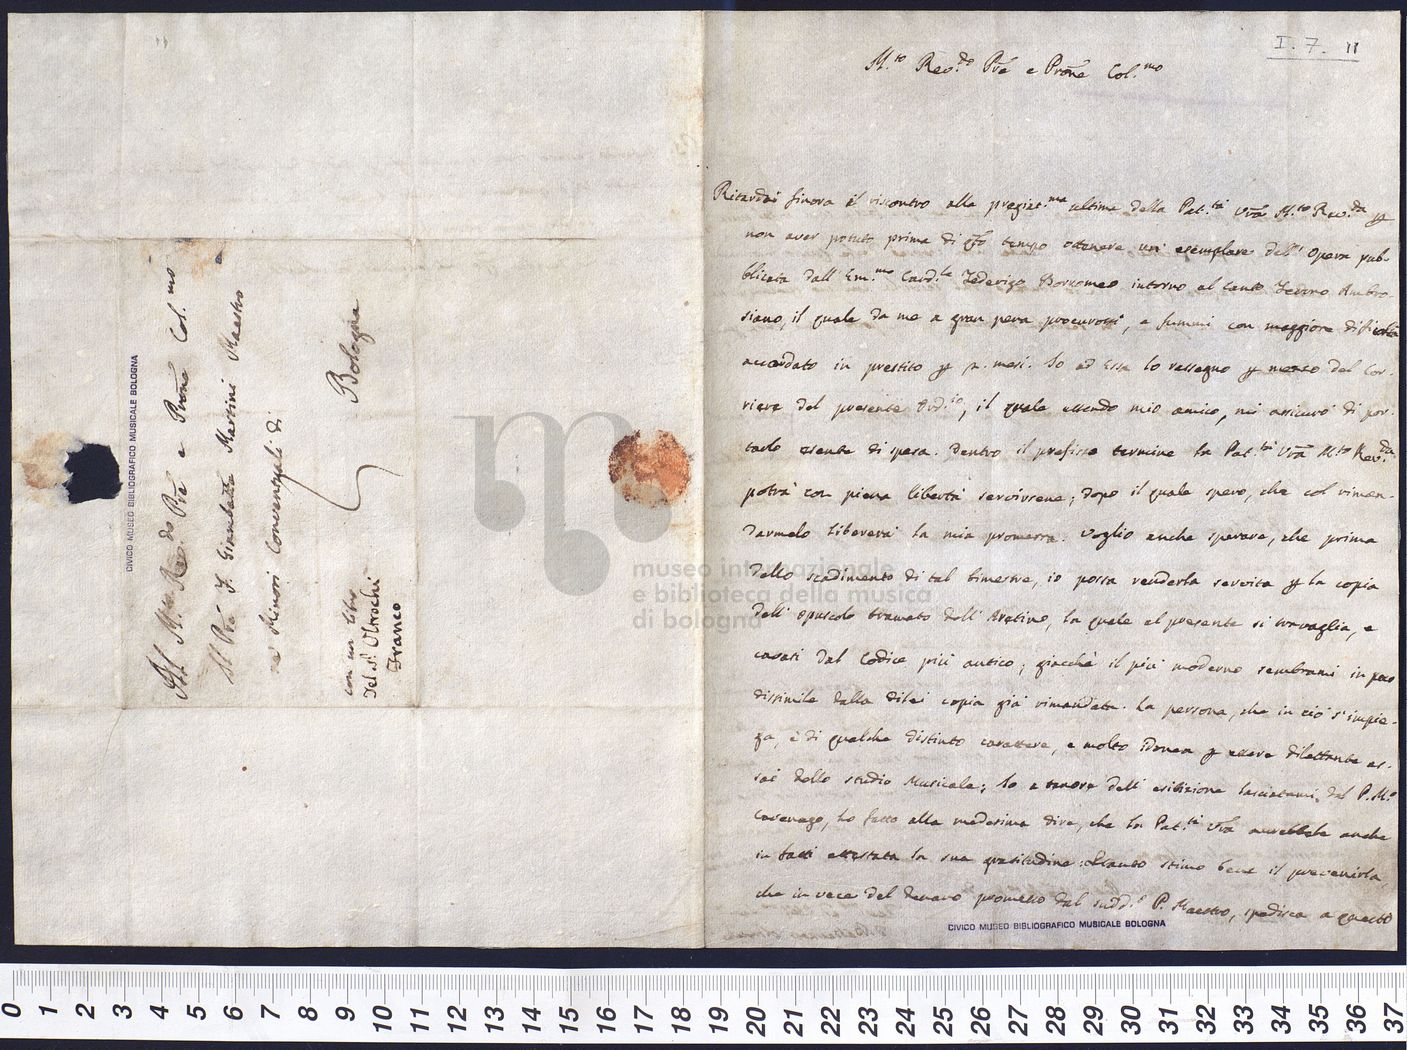 I. 7. 11
M.to Rev.do Pre e Prone Col.mo
Ritardai sinora il riscontro alla pregiat.ma ultima della Pat.tà Vra M.to Rev.da p
non aver potuto prima di qto tempo ottenere un esemplare dell' Opera pub-
blicata dall' Em.mo Card.le Federigo Borromeo intorno al Canto Fermo Ambro-
siano, il quale da me a gran pena procurossi, e fummi con maggiore dificoltà
accordato in prestito p 2. mesi. Io ad Essa lo rassegno p mezzo del Cor-
riere del presente Ord.io, il quale essendo mio amico, mi assicurò di por-
tarlo esente di spesa. Dentro il prefisso termine la Pat.tà Vra M.to Rev.da
potrà con piena libertà servirsene; dopo il quale spero, che col riman-
darmelo libererà la mia promessa. Voglio anche sperare, che prima
dello scadimento di tal bimestre, io possa renderla servita p la copia
dell' opuscolo bramato dell' Aretino, la quale al presente si travaglia, e
cavasi dal Codice più antico; giacchè il più moderno sembrami in poco
dissimile dalla dilei copia già rimandata. La persona, che in ciò s'impie-
ga, è di qualche distinto carattere, e molto idonea p essere dilettante as-
sai dello studio Musicale; Io a tenore dell' esibizione lasciatami dal P. M.o
Cavenago, ho fatto alla medesima dire, che la Pat.tà Vra avrebbele anche
in fatti attestata la sua gratitudine: Stanto stimo bene il prevenirla,
che in vece del denaro promesso dal sudd.o P. Maestro, spedisca a questo
CIVICO MUSEO BIBLIOGRAFICO MUSICALE BOLOGNA
Al M.to Rev.do Pre e Prone Col.mo
Il Pre F. Giambatta Martini Maestro
ne' Minori Conventuali di
Bologna
con un libro
del S.r Oltrochi
Franco
CIVICO MUSEO BIBLIOGRAFICO MUSICALE BOLOGNA
museo internazionale
e biblioteca della musica
di bologna
0 1 2 3 4 5 6 7 8 9 10 11 12 13 14 15 16 17 18 19 20 21 22 23 24 25 26 27 28 29 30 31 32 33 34 35 36 37